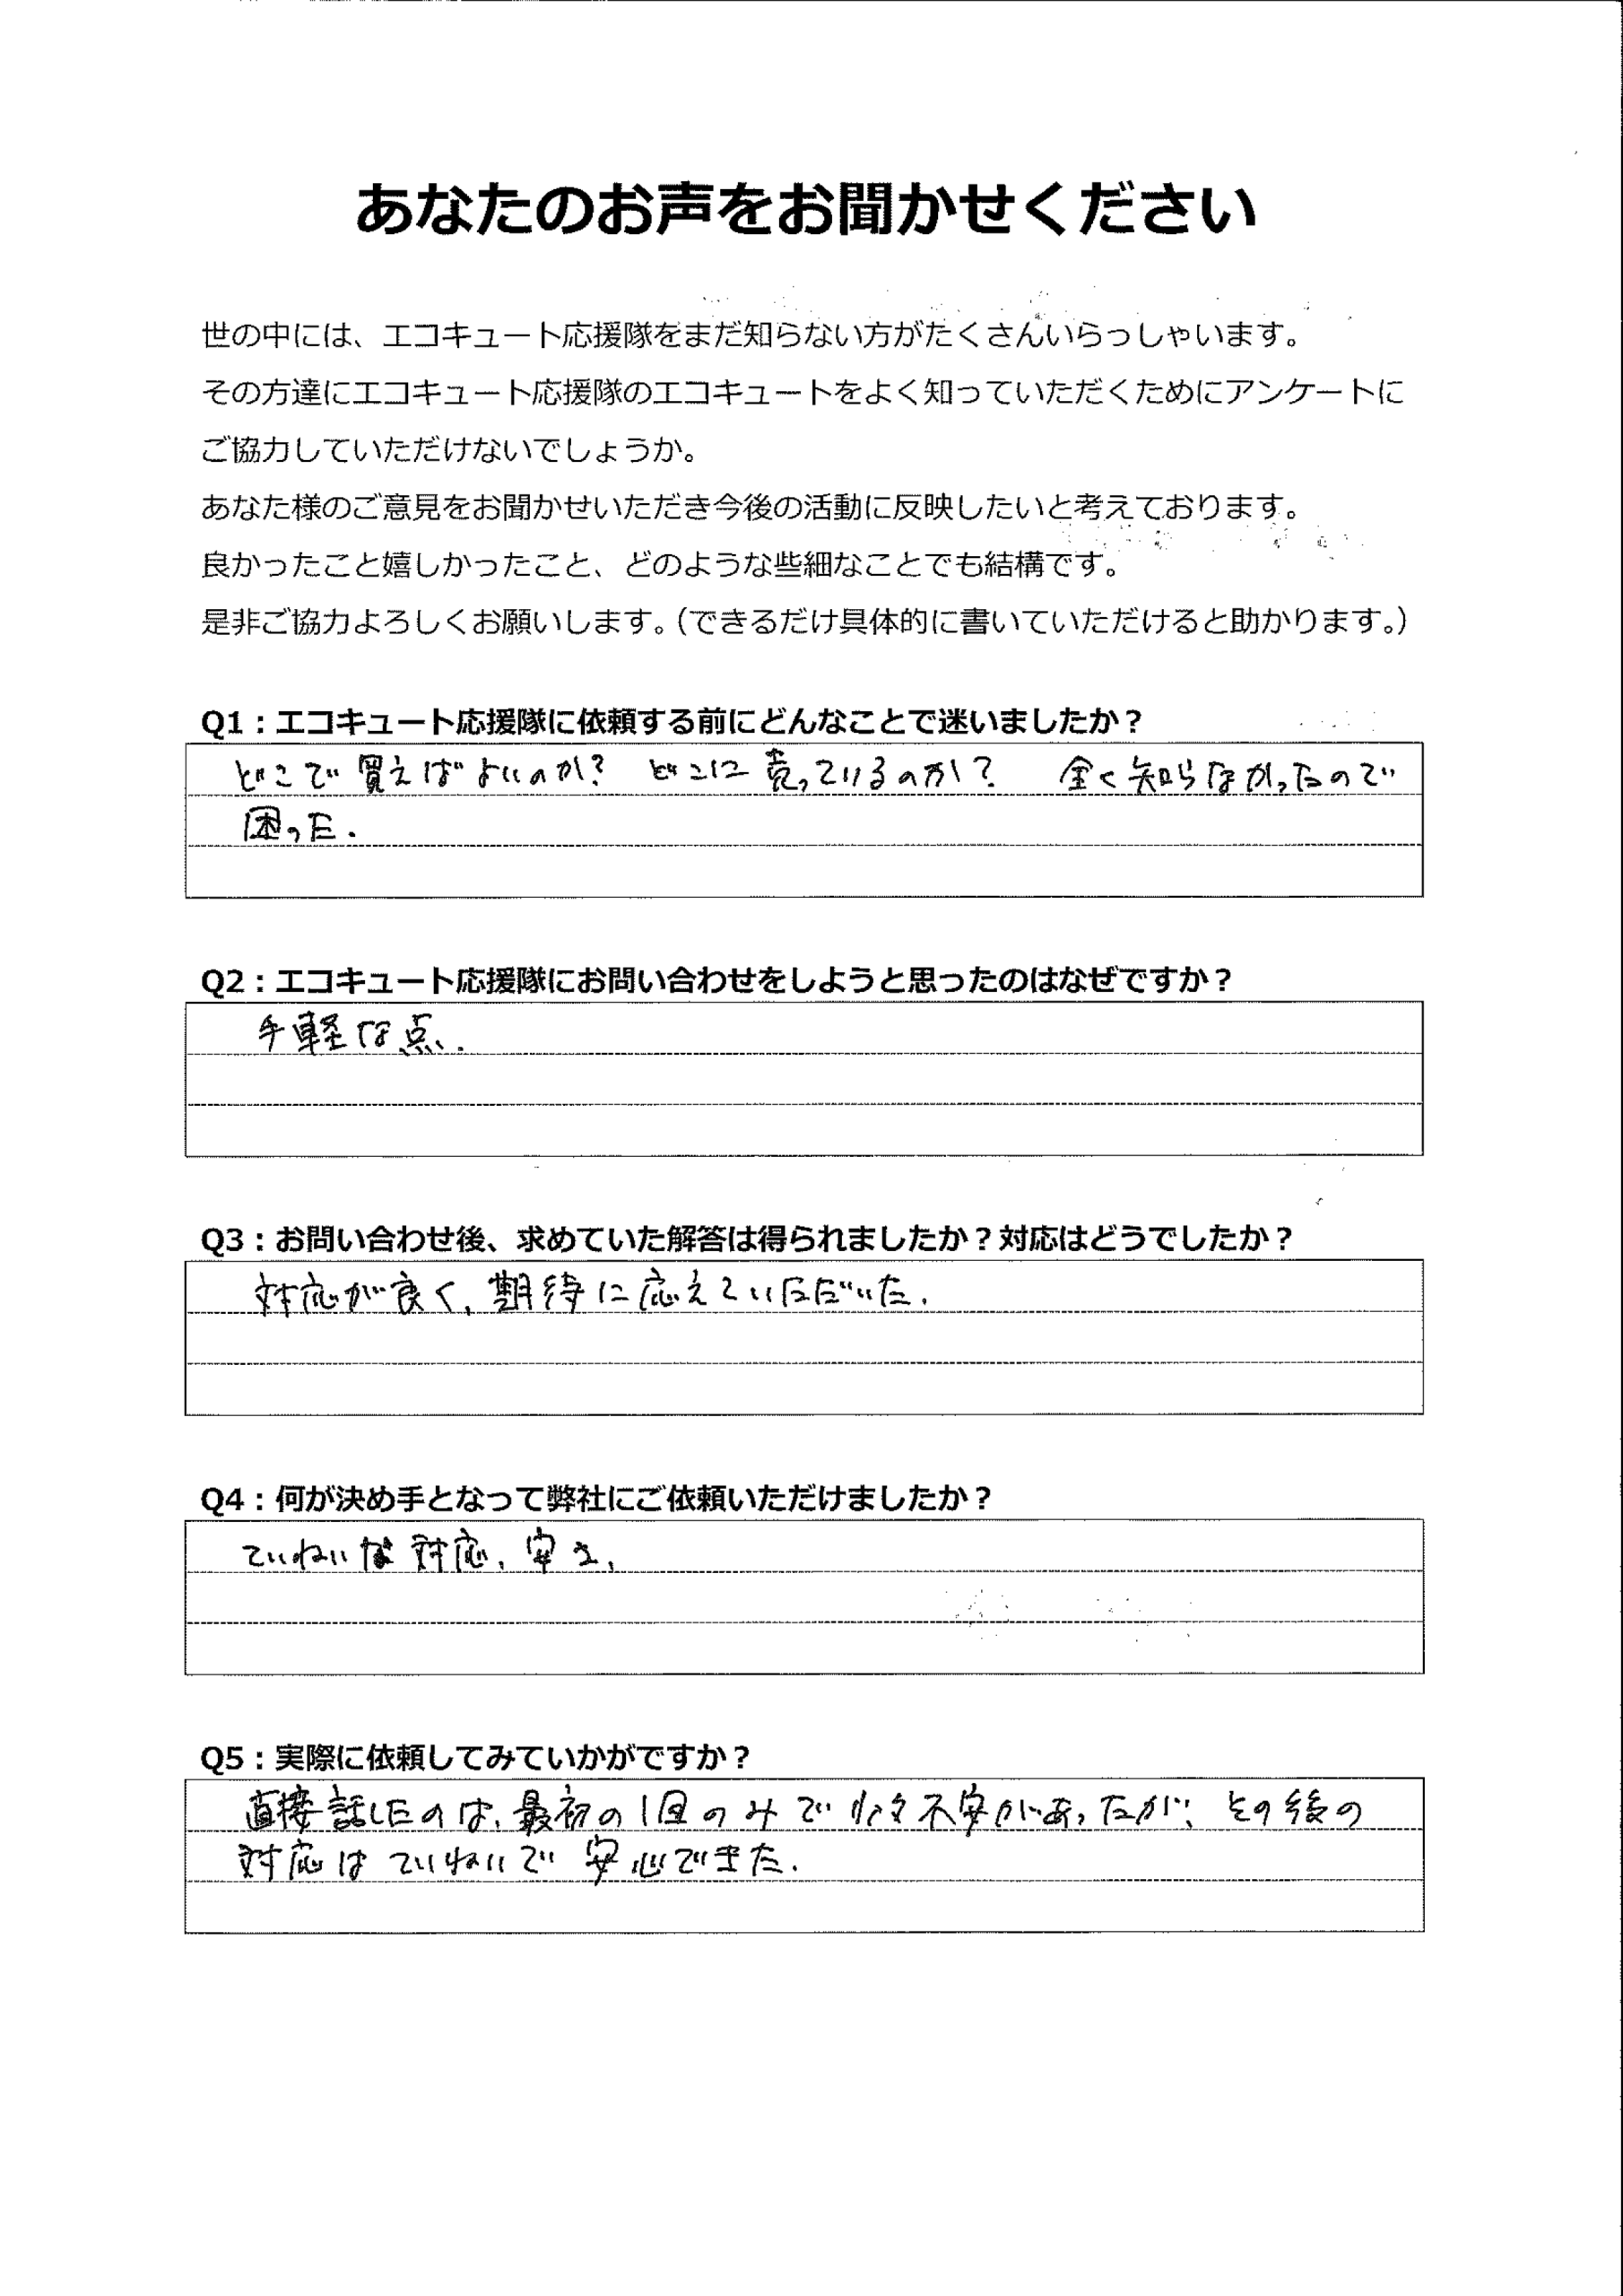 あなたのお声をお聞かせください
世の中には、エコキュート応援隊をまだ知らない方がたくさんいらっしゃいます。
その方達にエコキュート応援隊のエコキュートをよく知っていただくためにアンケートに
ご協力していただけないでしょうか。
あなた様のご意見をお聞かせいただき今後の活動に反映したいと考えております。
良かったこと嬉しかったこと、どのような些細なことでも結構です。
是非ご協力よろしくお願いします。（できるだけ具体的に書いていただけると助かります。）
Q1：エコキュート応援隊に依頼する前にどんなことで迷いましたか？
どこで買えばよいのか？ どこに売っているのか？ 全く知らなかったので
困った.
Q2：エコキュート応援隊にお問い合わせをしようと思ったのはなぜですか？
手軽な点.
Q3：お問い合わせ後、求めていた解答は得られましたか？対応はどうでしたか？
対応が良く、期待に応えていただいた.
Q4：何が決め手となって弊社にご依頼いただけましたか？
ていねいな対応、安さ、
Q5：実際に依頼してみていかがですか？
直接話したのは、最初の1回のみで少々不安があったが、その後の
対応はていねいで安心できた.